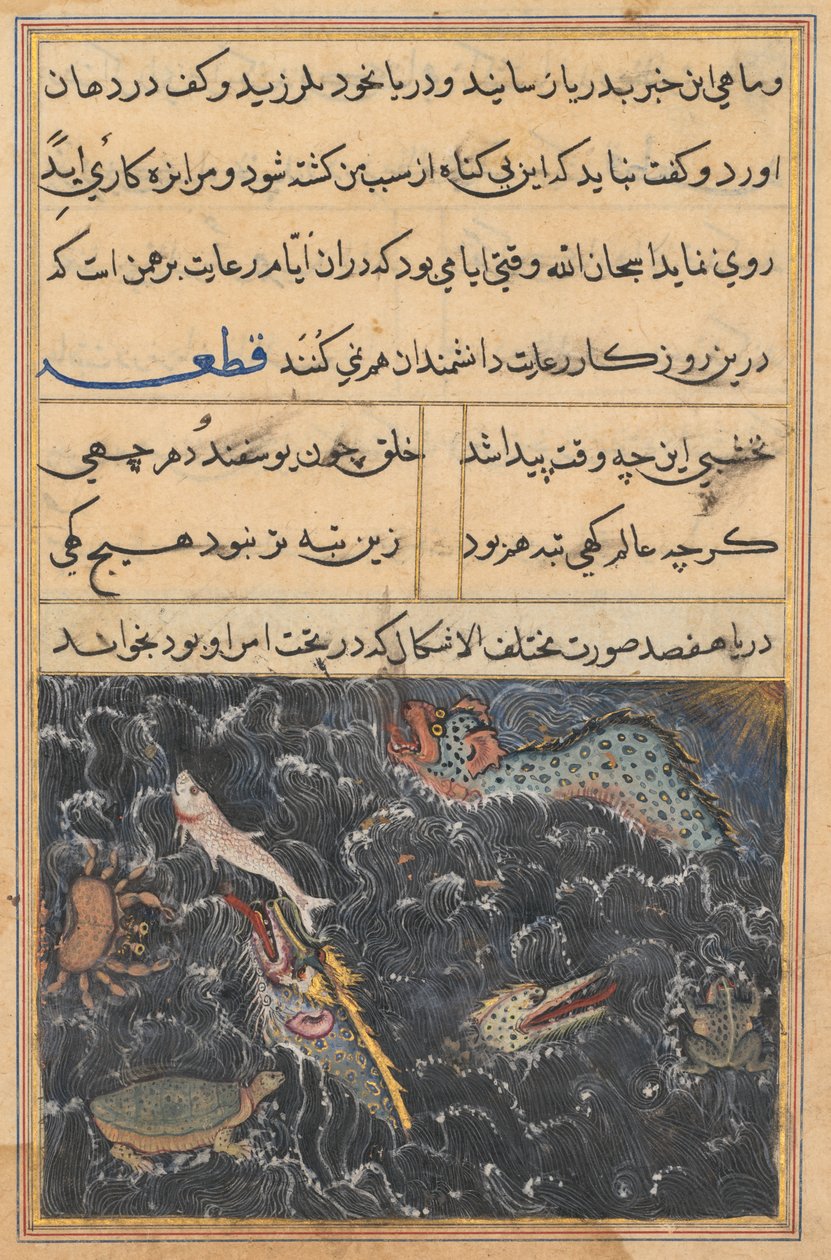 و ماهي اين خبر بدريا رسانيد و دريا بخود بلرزيد و كف در دهان
اورد و كفت نبايد كه اين بي كناه از سبب من كشته شود و مرا بزه كاري ابد
روي نمايد اسبحان الله وقتي ايامي بود كه دران أيّام رعايت برهمن است كه
درين روزكار رعايت دانشمندان هم نمي كُننَد قطعه
نخشبي اين چه وقت پيدا شد
خلق چون يوسفند و دهر چهي
كرچه عالم كهي تبه هم بود
زين تبه تر نبود هيچ كهي
دريا هفصد صورت مختلف الاشكال كه در تحت امر او بود بخواند